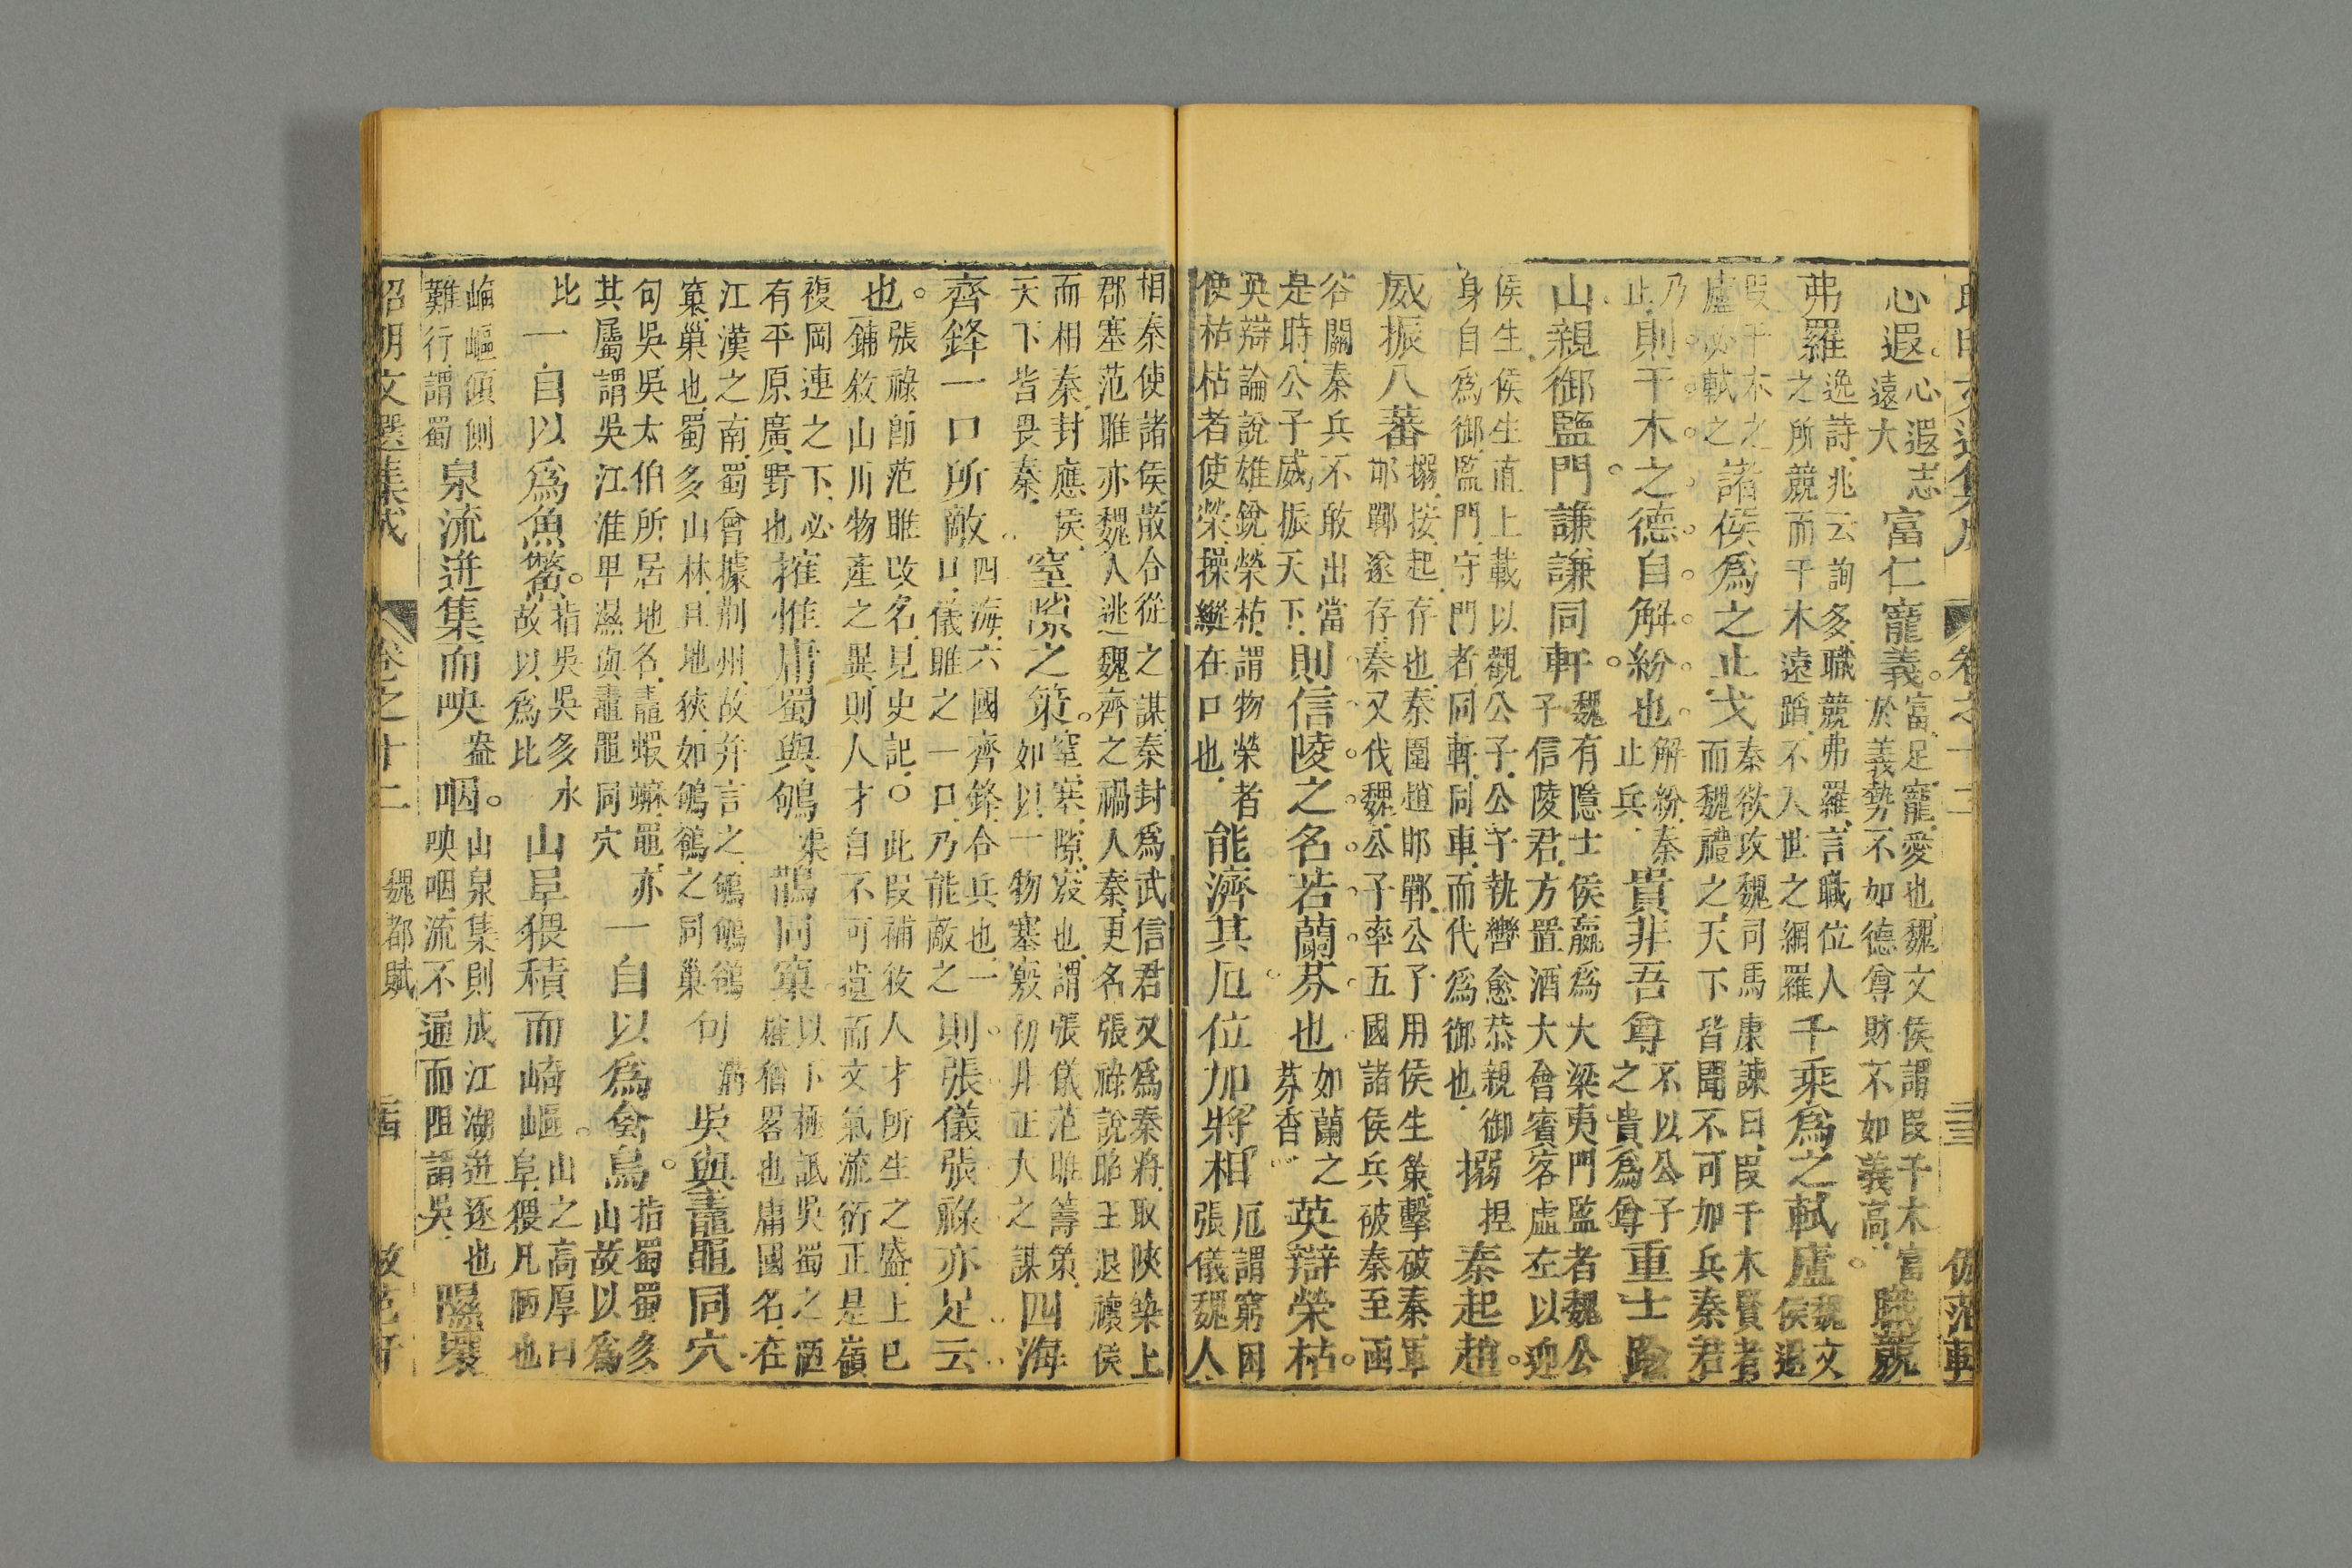 心遐心遐志遠大富仁寵義富足寵愛也魏文侯謂段干木富於義勢不如德尊財不如義高職競
弗羅逸詩兆云詢多職競弗羅言職位人之所競而干木遠蹈不入世之網羅千乘爲之軾廬魏文侯過
段干木之廬必軾之諸侯爲之止戈秦欲攻魏司馬康諫曰段干木賢者而魏禮之天下皆聞不可加兵秦君
乃止則干木之德自解紛也解紛秦止兵貴非吾尊不以公子之貴爲尊重士踰
山親御監門謙謙同軒魏有隱士侯嬴爲大梁夷門監者魏公子信陵君方置酒大會賓客虛左以迎
侯生侯生直上載以觀公子公子執轡愈恭親御身自爲御監門守門者同軒同車而代爲御也搦捏秦起趙
威振八蕃搦按起存也秦圍趙邯鄲公子用侯生策擊破秦軍邯鄲遂存秦又伐魏公子率五國諸侯兵破秦至函
谷關秦兵不敢出當是時公子威振天下則信陵之名若蘭芬也如蘭之芬香英辯榮枯
英辯論說雄銳榮枯謂物榮者使枯枯者使榮操縱在口也能濟其厄位加將相厄謂窮困張儀魏人
相秦使諸侯散合從之謀秦封爲武信君又爲秦將取陝築上郡塞范雎亦魏人逃魏齊之禍入秦更名張祿說昭王退穰侯
而相秦封應侯天下皆畏秦窒隙之策窒塞隙𨻶也謂張儀范雎籌策如以一物塞竅初非正大之謀四海
齊鋒一口所敵四海六國齊鋒合兵也一口儀雎之一口乃能敵之則張儀張祿亦足云
也張祿卽范雎改名見史記○此段補敘人才所生之盛上已鋪敘山川物產之異則人才自不可遺而文氣流衍正是嶺
複岡連之下必有平原廣野也搉惟庸蜀與鴝渠鵲同窠以下極詆吳蜀之陋搉猶畧也庸國名在
江漢之南蜀曾據荆州故并言之鴝鴝鵒窠巢也蜀多山林且地狹如鴝鵒之同巢句溝吳與鼃黽同穴
句吳吳太伯所居地名鼃蝦蟆黽亦其屬謂吳江淮卑濕與鼃黽同穴一自以爲禽鳥指蜀蜀多山故以爲
比一自以爲魚鱉指吳吳多水故以爲比山阜猥積而崎嶇山之高厚曰阜猥凡陋也
崎嶇傾側難行謂蜀泉流迸集而映盎咽山泉集則成江湖迸逐也映咽流不通而阻謂吳隰壤
昭明文選集成 卷之十二 魏都賦